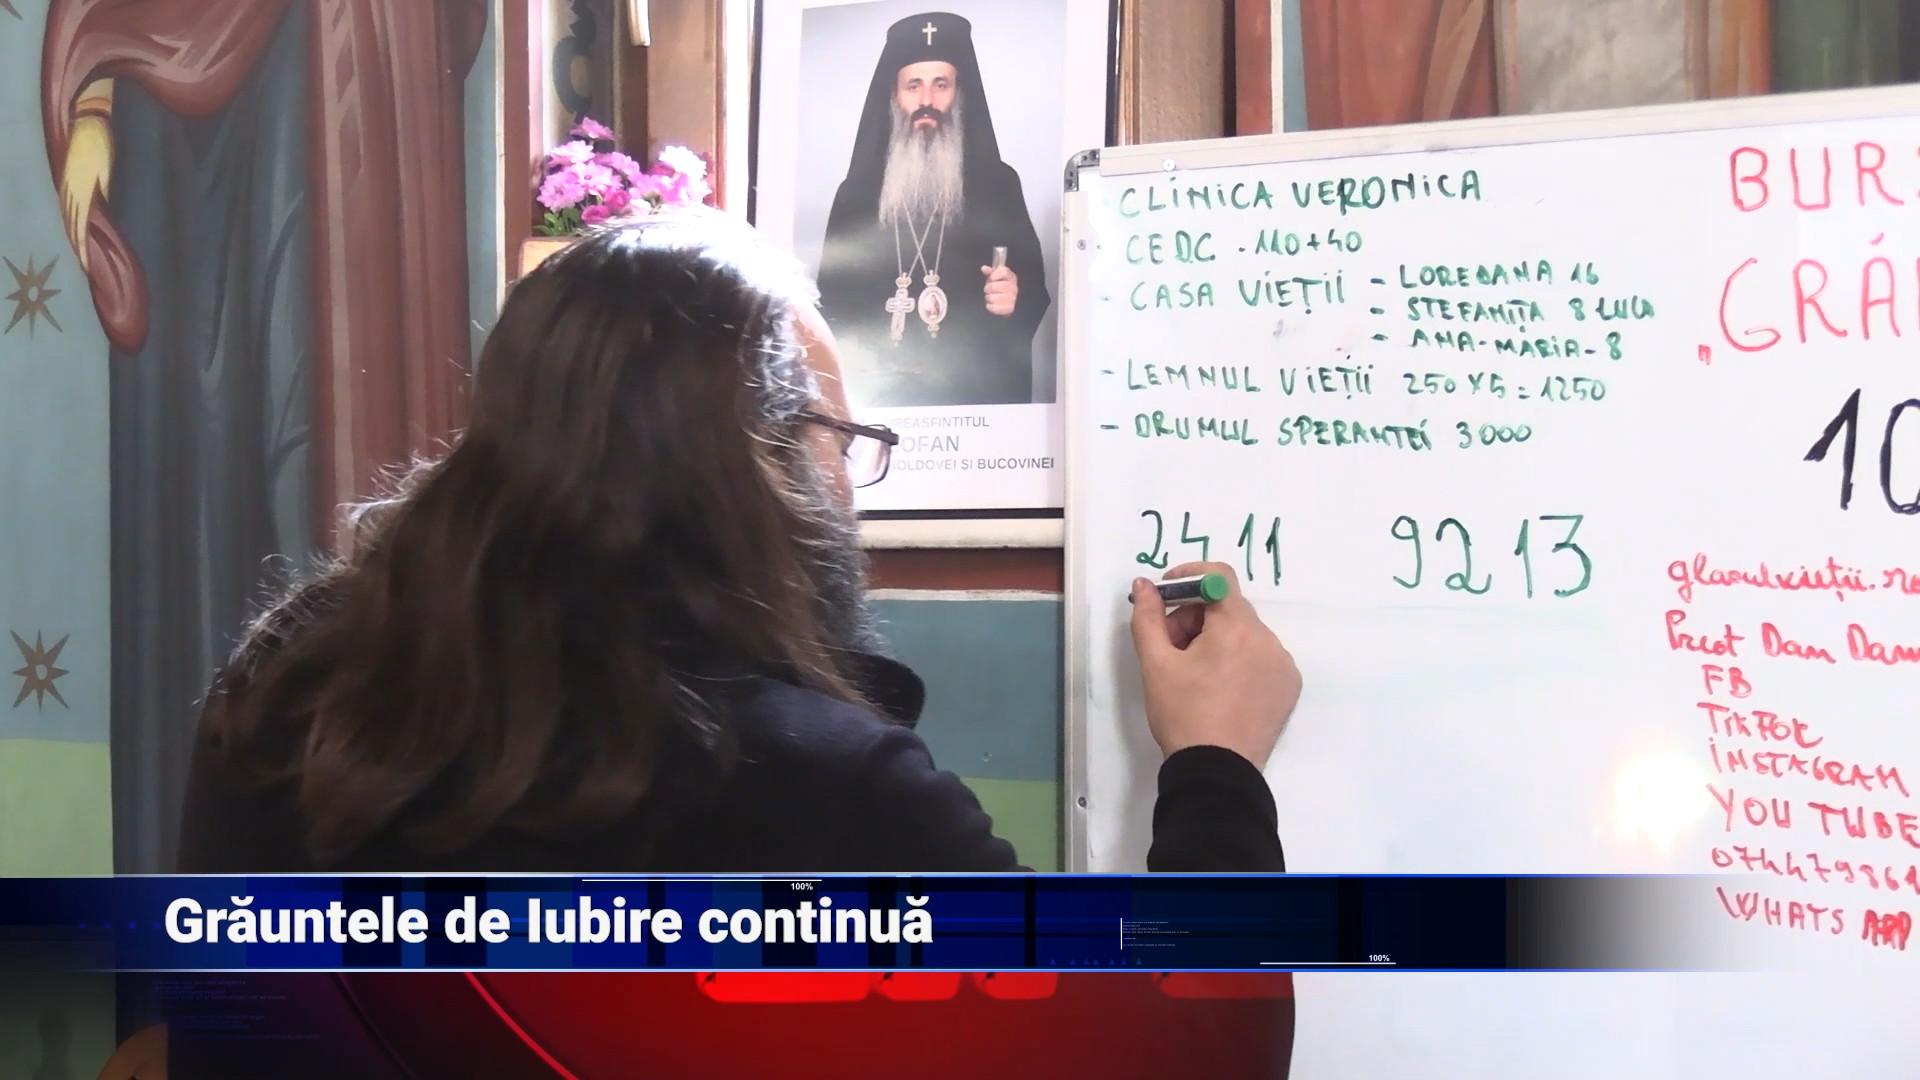 REASFINTITUL
OFAN
OLDOVEI ȘI BUCOVINEI
CLINICA VERONICA
CEDC . 110+40
- CASA VIEȚII - LOREDANA 16
- ȘTEFANIȚA 8 LUNI
- ANA-MARIA-8
- LEMNUL VIEȚII 250 X 5 = 1250
- DRUMUL SPERANTEI 3000
2411 9213
BURS
„GRĂ
10
glasulvieții.ro
Preot Dan Dam
FB
TIKTOK
INSTAGRAM
YOU TUBE
074479861
WHATS APP
100%
Grăuntele de Iubire continuă
100%